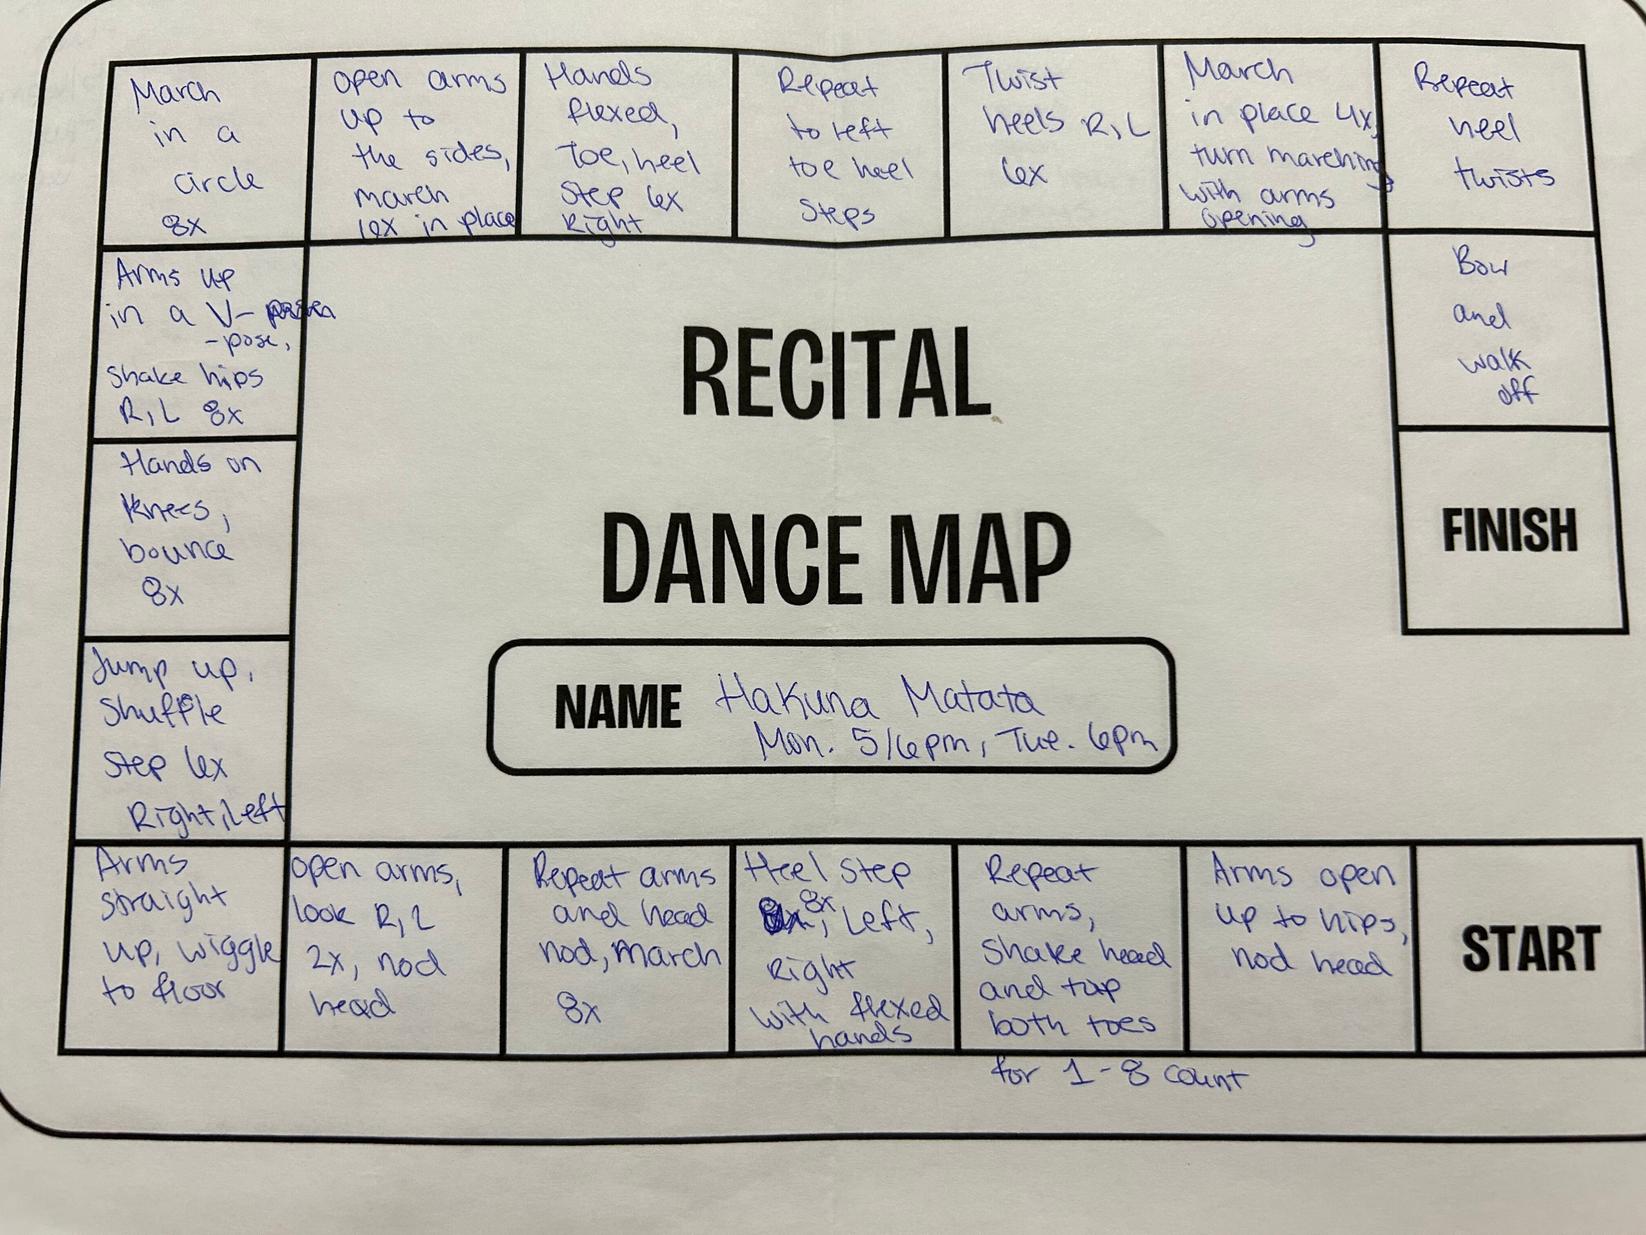 March
in a
circle
8x
open arms
up to
the sides,
march
in place
Hands
flexed,
Toe, heel
Step 6x
Right
Repeat
to left
toe heel
Steps
Twist
heels R, L
6x
March
in place 4x,
turn marching
with arms
opening
Repeat
heel
twists
Arms up
in a V-
-pose,
shake hips
R, L 8x
Bow
and
walk
off
Hands on
knees,
bounce
8x
Jump up,
Shuffle
step 6x
Right, Left
RECITAL
DANCE MAP
NAME Hakuna Matata
Mon. 5/6pm, Tue. 6pm
FINISH
Arms
straight
up, wiggle
to floor
open arms,
look R, L
2x, nod
head
Repeat arms
and head
nod, march
8x
Heel Step
8x, Left,
Right
with flexed
hands
Repeat
arms,
shake head
and tap
both toes
for 1-8 count
Arms open
up to hips,
nod head
START